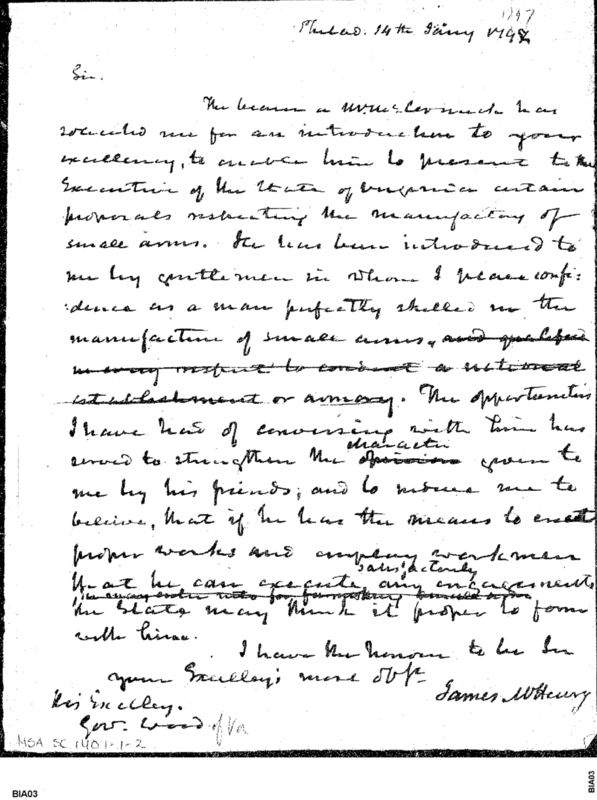 1797
Philad. 14th Jany 1797
Sir.
The bearer a Mr McCormick has
solicited me for an introduction to your
excellency, to enable him to present to the
Executive of the State of Virginia certain
proposals respecting the manufactory of
small arms. He has been introduced to
me by gentlemen in whom I place confi:
:dence as a man perfectly skilled in the
manufacture of small arms, and qualified
in every respect to conduct a national
establishment or armory. The opportunities
I have had of conversing with him has
character
served to strengthen the opinion given to
me by his friends; and to induce me to
believe, that if he has the means to erect
proper works and employ workmen
satisfactorily
that he can execute, any engagements
he may enter into for furnishing small arms
the State may think it proper to form
with him.
I have the honour to be Sir
your Excelley's most obt
James McHenry
His Excelley.
Gov. Wood of Va
MSA SC 1401-1-2
BIA03
BIA03